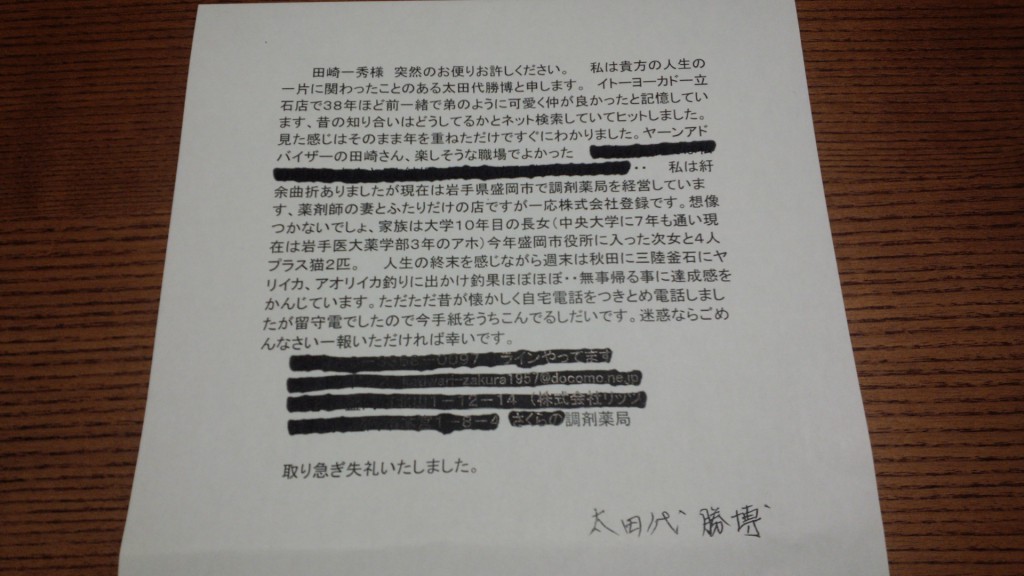 田崎一秀様 突然のお便りお許しください。 私は貴方の人生の
一片に関わったことのある太田代勝博と申します。イトーヨーカドー立
石店で38年ほど前一緒で弟のように可愛く仲が良かったと記憶してい
ます、昔の知り合いはどうしてるかとネット検索していてヒットしました。
見た感じはそのまま年を重ねただけですぐにわかりました。ヤーンアド
バイザーの田崎さん、楽しそうな職場でよかった
‥ 私は紆
余曲折ありましたが現在は岩手県盛岡市で調剤薬局を経営していま
す、薬剤師の妻とふたりだけの店ですが一応株式会社登録です。想像
つかないでしょ、家族は大学10年目の長女(中央大学に7年も通い現
在は岩手医大薬学部3年のアホ)今年盛岡市役所に入った次女と4人
プラス猫2匹。 人生の終末を感じながら週末は秋田に三陸釜石にヤ
リイカ、アオリイカ釣りに出かけ釣果ほぼほぼ‥無事帰る事に達成感を
かんじています。ただただ昔が懐かしく自宅電話をつきとめ電話しまし
たが留守電でしたので今手紙をうちこんでるしだいです。迷惑ならごめ
んなさい一報いただければ幸いです。
調剤薬局
取り急ぎ失礼いたしました。
太田代 勝博